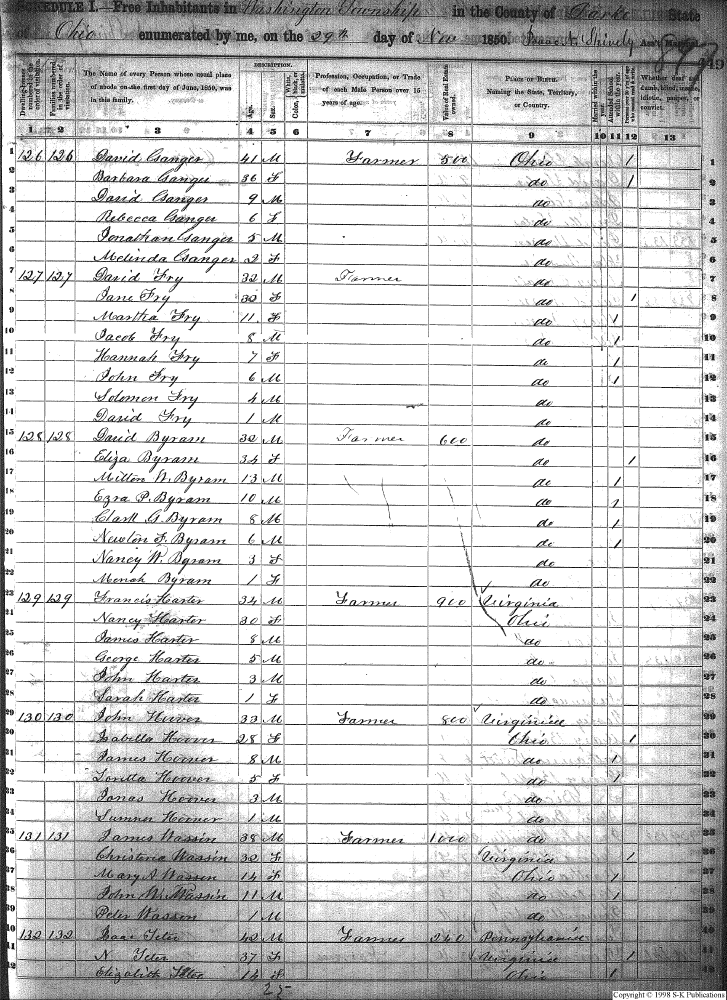 SCHEDULE I.—Free Inhabitants in Washington Township in the County of Darke State
of Ohio enumerated by me, on the 29th day of Nov 1850.
Dwelling-houses numbered in the order of visitation.
Families numbered in the order of visitation.
The Name of every Person whose usual place of abode on the first day of June, 1850, was in this family.
DESCRIPTION.
Age.
Sex.
Color, White, black, or mulatto.
Profession, Occupation, or Trade of each Male Person over 15 years of age.
Value of Real Estate owned.
PLACE OF BIRTH. Naming the State, Territory, or Country.
Married within the year.
Attended School within the year.
Persons over 20 y'rs of age who cannot read & write.
Whether deaf and dumb, blind, insane, idiotic, pauper, or convict.
1 2 3 4 5 6 7 8 9 10 11 12 13
1 126 126 David Ganger 41 M Farmer 500 Ohio 1 1
2 Barbara Ganger 36 F do 1 2
3 David Ganger 9 M do 3
4 Rebecca Ganger 6 F do 4
5 Jonathan Ganger 5 M do 5
6 Melinda Ganger 2 F do 6
7 127 127 David Fry 32 M Farmer do 7
8 Jane Fry 30 F do 1 8
9 Martha Fry 11 F do 1 9
10 Jacob Fry 8 M do 1 10
11 Hannah Fry 7 F do 1 11
12 John Fry 6 M do 1 12
13 Solomon Fry 4 M do 13
14 David Fry 1 M do 14
15 128 128 David Byram 32 M Farmer 600 do 15
16 Eliza Byram 34 F do 1 16
17 Milton W. Byram 13 M do 1 17
18 Ezra P. Byram 10 M do 1 18
19 Clark G. Byram 8 M do 1 19
20 Newton F. Byram 6 M do 1 20
21 Nancy W. Byram 3 F do 21
22 Byram 1 F do 22
23 129 129 Francis Harter 34 M Farmer 900 Virginia 23
24 Nancy Harter 30 F Ohio 24
25 James Harter 8 M do 25
26 George Harter 5 M do 26
27 John Harter 3 M do 27
28 Sarah Harter 1 F do 28
29 130 130 John Hoover 33 M Farmer 800 Virginia 29
30 Isabella Hoover 28 F Ohio 1 30
31 James Hoover 8 M do 1 31
32 Loretta Hoover 5 F do 1 32
33 Jonas Hoover 3 M do 33
34 Sumner Hoover 1 M do 34
35 131 131 James Wassin 38 M Farmer 1000 do 35
36 Christena Wassin 32 F Virginia 1 36
37 Mary A Wassin 14 F Ohio 1 37
38 John W. Wassin 11 M do 1 38
39 Peter Wasson 1 M do 39
40 132 132 Isaac Teter 42 M Farmer 240 Pennsylvania 40
41 N Teter 37 F Virginia 1 41
42 Elizabeth Teter 14 F Ohio 1 42
25
Copyright © 1998 S-K Publications